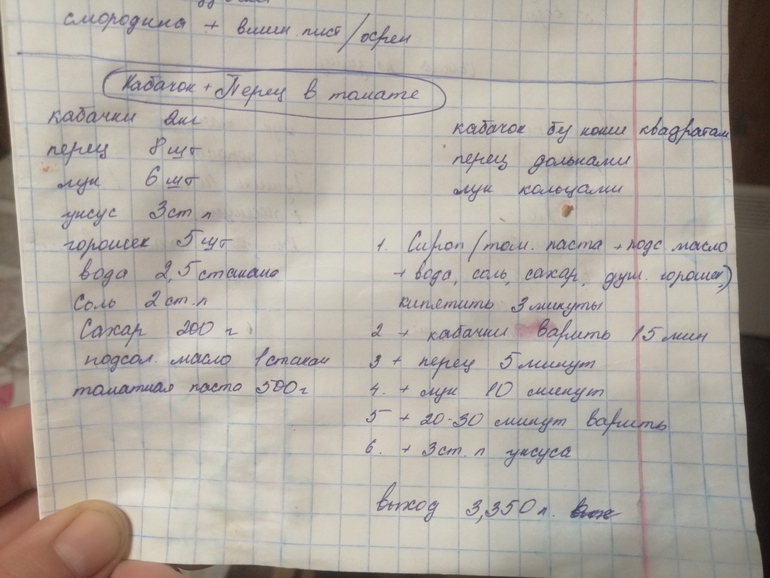 смородина + вишн. лист / хрен
Кабачок + Перец в томате
кабачки 2кг
перец 8 шт
лук 6 шт
уксус 3 ст. л
горошек 5 шт
вода 2,5 стакана
Соль 2 ст. л
Сахар 200 г
подсол. масло 1 стакан
томатная паста 500 г
кабачок квадратам
перец дольками
лук кольцами
1. Сироп / том. паста + подс. масло
+ вода, соль, сахар, душ. горошек)
кипятить 3 минуты
2 + кабачки варить 15 мин
3 + перец 5 минут
4. + лук 10 минут
5 + 20-30 минут варить
6. + 3 ст. л уксуса
выход 3,350 л.